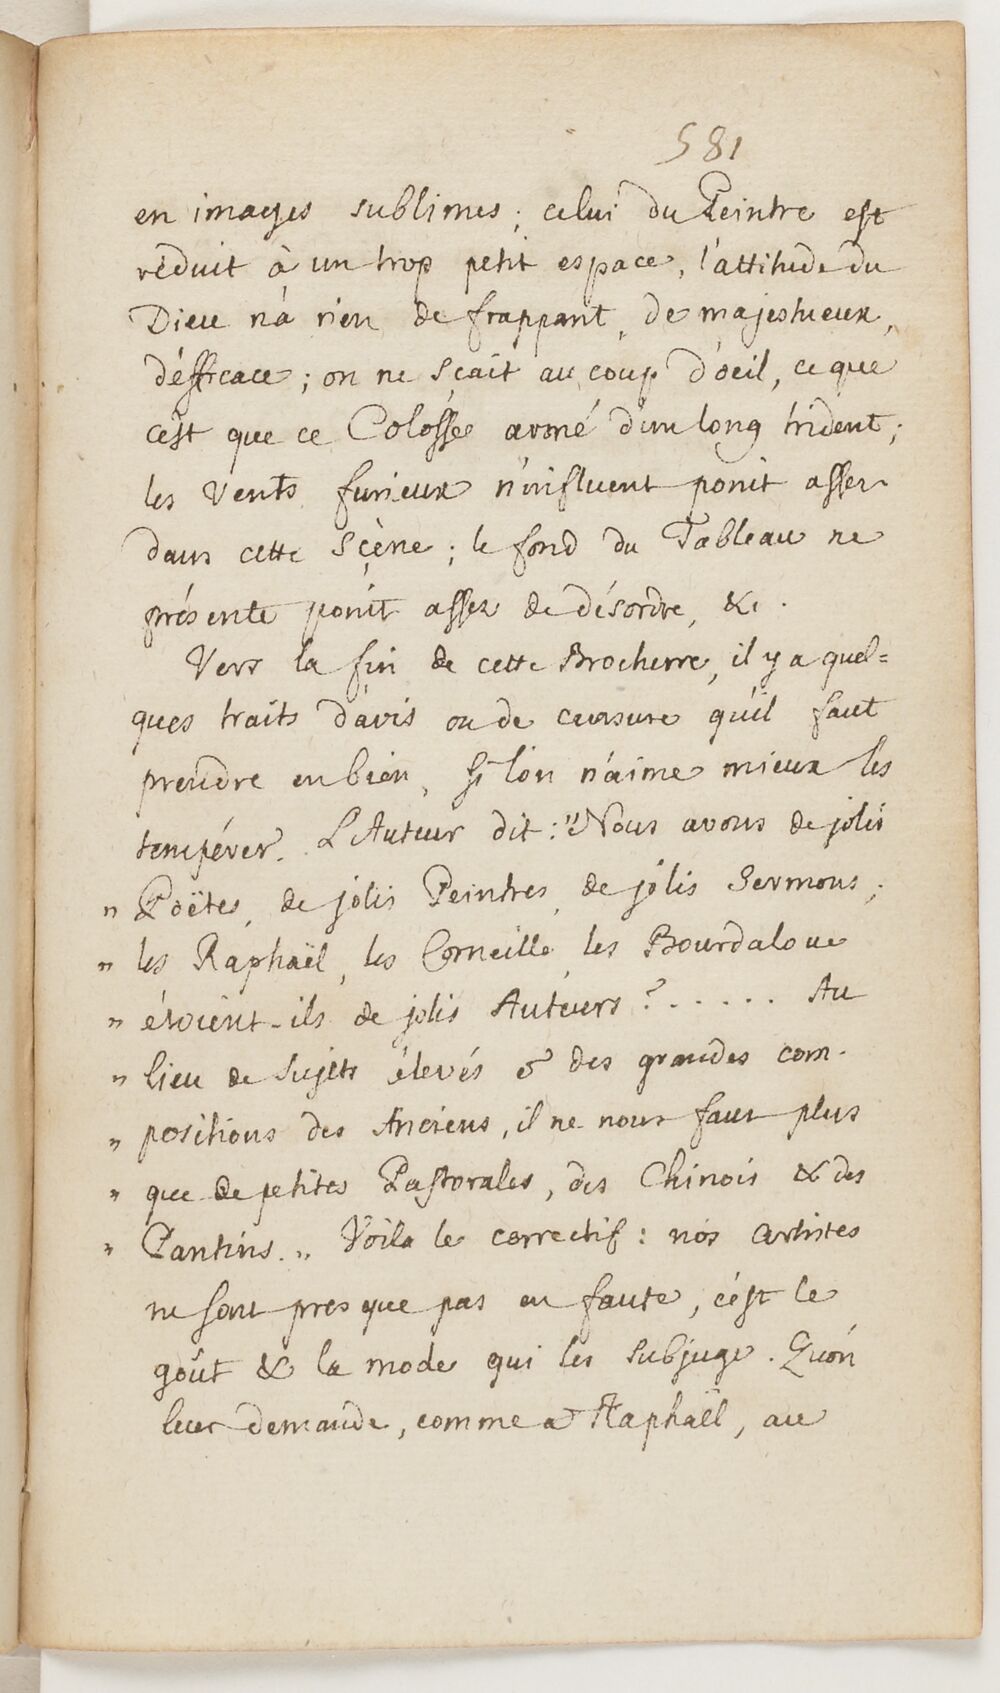 581
en images sublimes; celui du Peintre est
réduit à un trop petit espace, l'attitude du
Dieu n'a rien de frappant, de majestueux,
d'éfficace; on ne sçait au coup d'oeil, ce que
c'est que ce Colosse armé d'un long trident;
les Vents furieux n'influent point assez
dans cette Scène; le fond du Tableau ne
présente point assez de désordre, &c.
Vers la fin de cette Brochure, il y a quel=
ques traits d'avis ou de censure qu'il faut
prendre en bien, si l'on n'aime mieux les
tempérer. L'Auteur dit: "Nous avons de jolis
" Poëtes, de jolis Peintres, de jolis Sermons;
" les Raphaël, les Corneille, les Bourdaloue
" étoient-ils de jolis Auteurs?...... Au
" lieu de Sujets élevés & des grandes com-
" positions des Anciens, il ne nous faut plus
" que de petites Pastorales, des Chinois & des
" Pantins. " Voila le correctif: nos artistes
ne sont presque pas en faute, c'est le
goût & la mode qui les subjuge. Qu'on
leur demande, comme a Raphaël, au